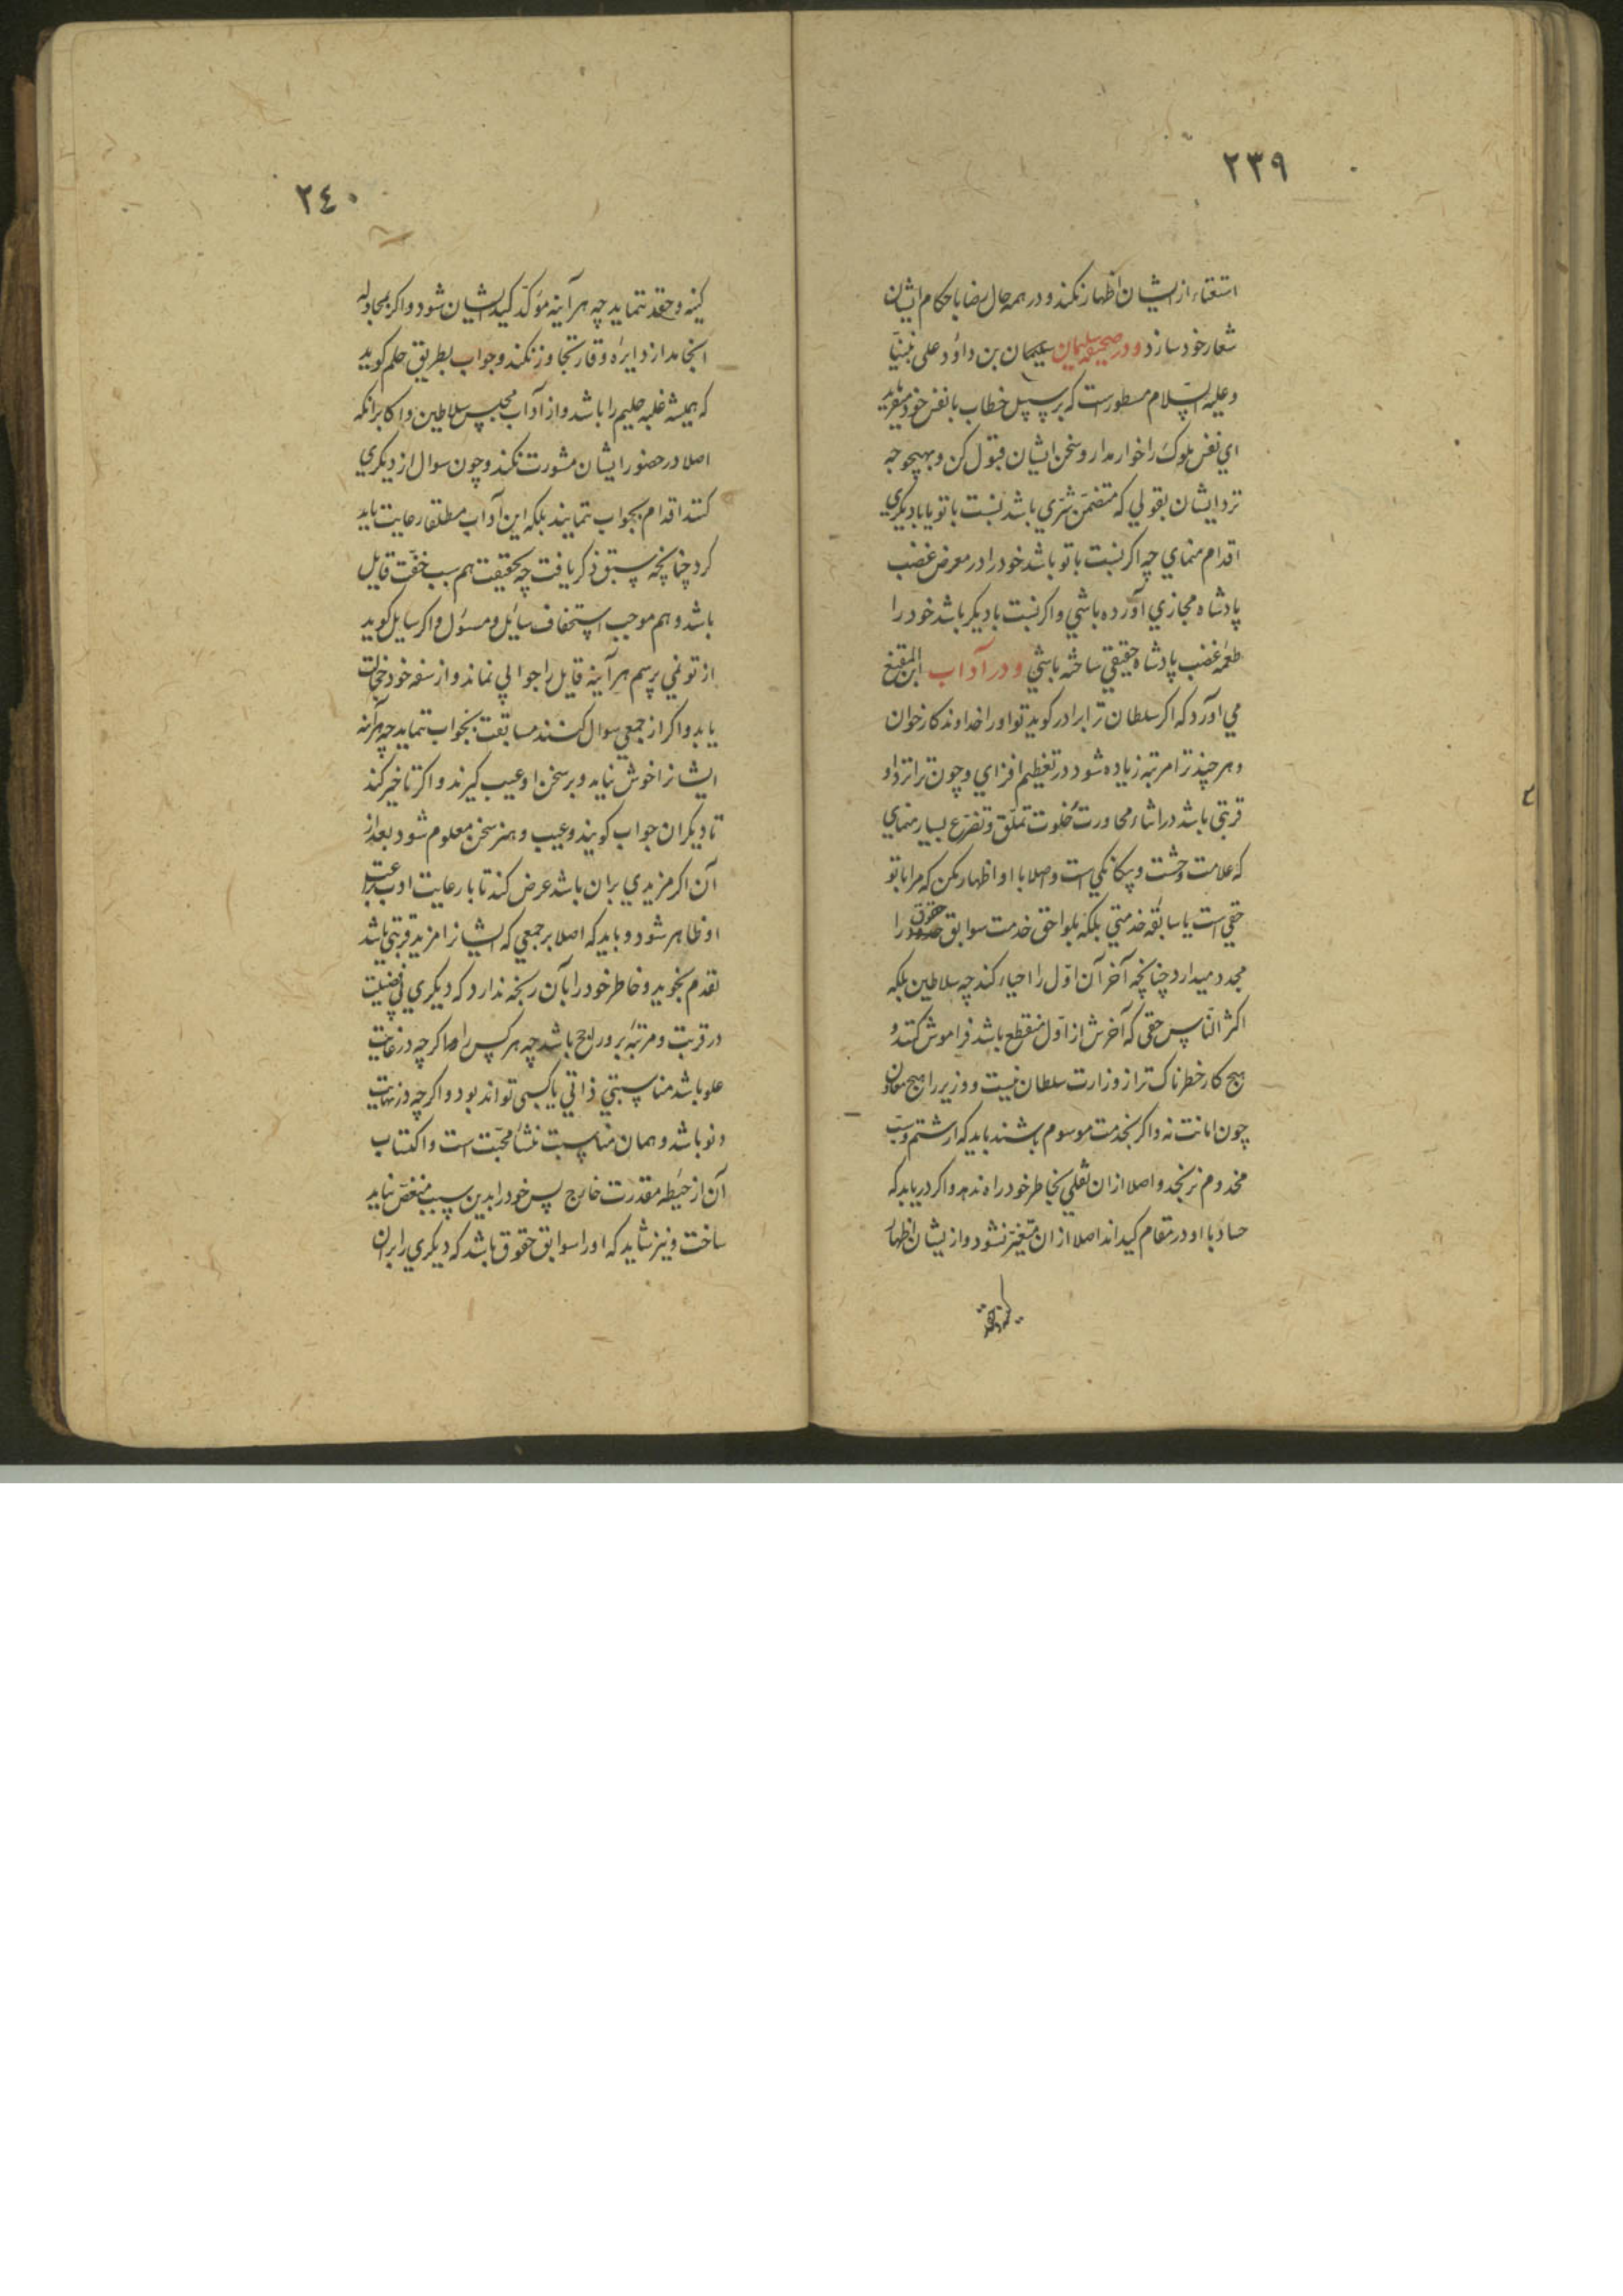 ٢٣٩
استغناء از ایشان اظهار نکند و در همه حال رضا باحکام ایشان
شعار خود سازد و در صحیفه سلیمان سلیمان بن داؤد علی نبینا
و علیه السلام مسطورست که بر سبیل خطاب با نفس خود میفرماید
اي نفس ملوک را خوار مدار و سخن ایشان قبول کن و بهیچوجه
نزد ایشان بقولي که متضمن شري باشد نسبت با تو یا با دیگري
اقدام منماي چه اکر نسبت با تو باشد خود را در معرض غضب
پادشاه مجازي آورده باشي و اکر نسبت با دیکر باشد خود را
طعمهٔ غضب پادشاه حقیقي ساخته باشي و در آداب ابن المقنع
مي آورد که اکر سلطان ترا برادر کوید تو اورا خداوندکار خوان
و هر چند ترا مرتبه زیاده شود در تعظیم افزاي و چون ترا نزد او
قربتي باشد در اثناء محاورت خلوت تملق و تضرع بسیار منماي
که علامت وحشت و بیکانکي است و اصلا با او اظهار مکن که مرا با تو
حقي است یا سابقه خدمتي بلکه بلواحق خدمت سوابق حقوق را
مجدد میدار چنانچه آخر آن اول را احیاء کند چه سلاطین بلکه
اکثر الناس حقي که آخرش از اول منقطع باشد فراموش کنند و
هیچ کار خطرناک تر از وزارت سلطان نیست و وزیر را هیچ معاون
چون امانت نه و اکر بخدمت موسوم باشند باید که از شتم و سب
مخدوم نرنجد و اصلا ازان ثقلي بخاطر خود راه ندهد و اکر دریابد که
حساد با او در مقام کیداند اصلا ازان متغیر نشود و از یشان اظهار
٢٤٠
کینه و حقد ننماید چه هر آینه مؤکد کید ایشان شود و اکر بمجادله
انجامد از دایرهٔ وقار تجاوز نکند و جواب بطریق حلم کوید
که همیشه غلبه حلیم را باشد و از آداب مجلس سلاطین و اکابر آنکه
اصلا در حضور ایشان مشورت نکند و چون سوال از دیکري
کنند اقدام بجواب ننمایند بلکه این آداب مطلقا رعایت باید
کرد چنانچه سبق ذکر یافت چه بحقیقت هم سبب خفت قایل
باشد و هم موجب استخفاف سائل و مسؤل و اکر سایل کوید
از تو نمي پرسم هر آینه قایل را جوابي نماند و از سفه خود خجالت
یابد و اکر از جمعي سوال کنند مسابقت بجواب ننماید چه هر آینه
ایشانرا خوش نیاید و بر سخن او عیب کیرند و اکر تاخیر کند
تا دیکران جواب کویند و عیب و هنر سخن معلوم شود بعد از
آن اکر مزیدي بران باشد عرض کند تا با رعایت ادب
او ظاهر شود و باید که اصلا بر جمعي که ایشانرا مزید قربتي باشد
تقدم نجوید و خاطر خود را بآن رنجه ندارد که دیکري بي فضیلت
در قربت و مرتبه برو راجح باشد چه هر کس را اکرچه در غایت
علو باشد مناسبتي ذاتي یا کسبی تواند بود و اکرچه در نهایت
دنو باشد و همان مناسبت منشأ محبت است و اکتساب
آن از حیطه مقدرت خارج پس خود را بدین سبب منغص نباید
ساخت و نیز شاید که اورا سوابق حقوق باشد که دیکري را بران